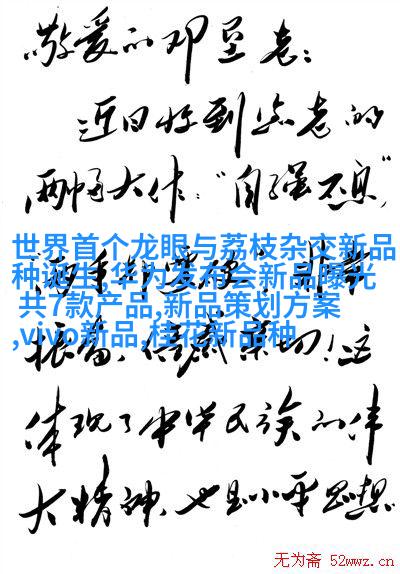 敬爱的邓垦老：
近日收到您老的
两幅大作："自强不息"
世界首个龙眼与荔枝杂交新品
种诞生,华为发布会新品曝光
共7款产品,新品策划方案
,vivo新品,桂花新品种
非常
振奋，倍感亲切！这
体现了中华民族的伟
大精神，也是小平思想
无为斋 52wwz.cn